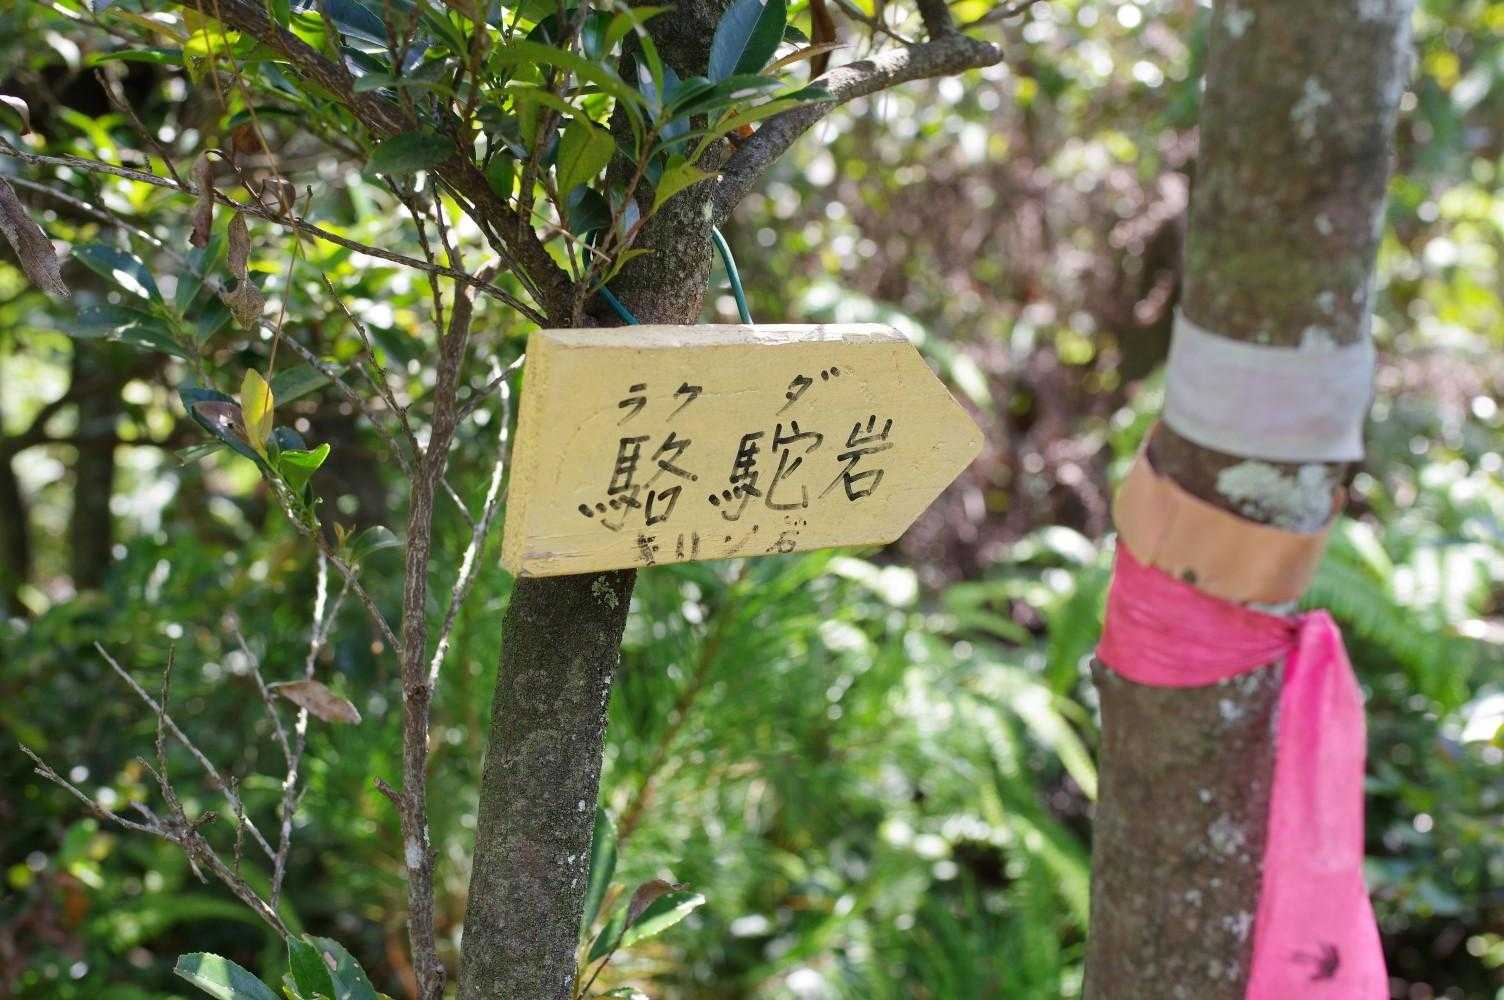 ラクダ
駱駝岩
キリンが